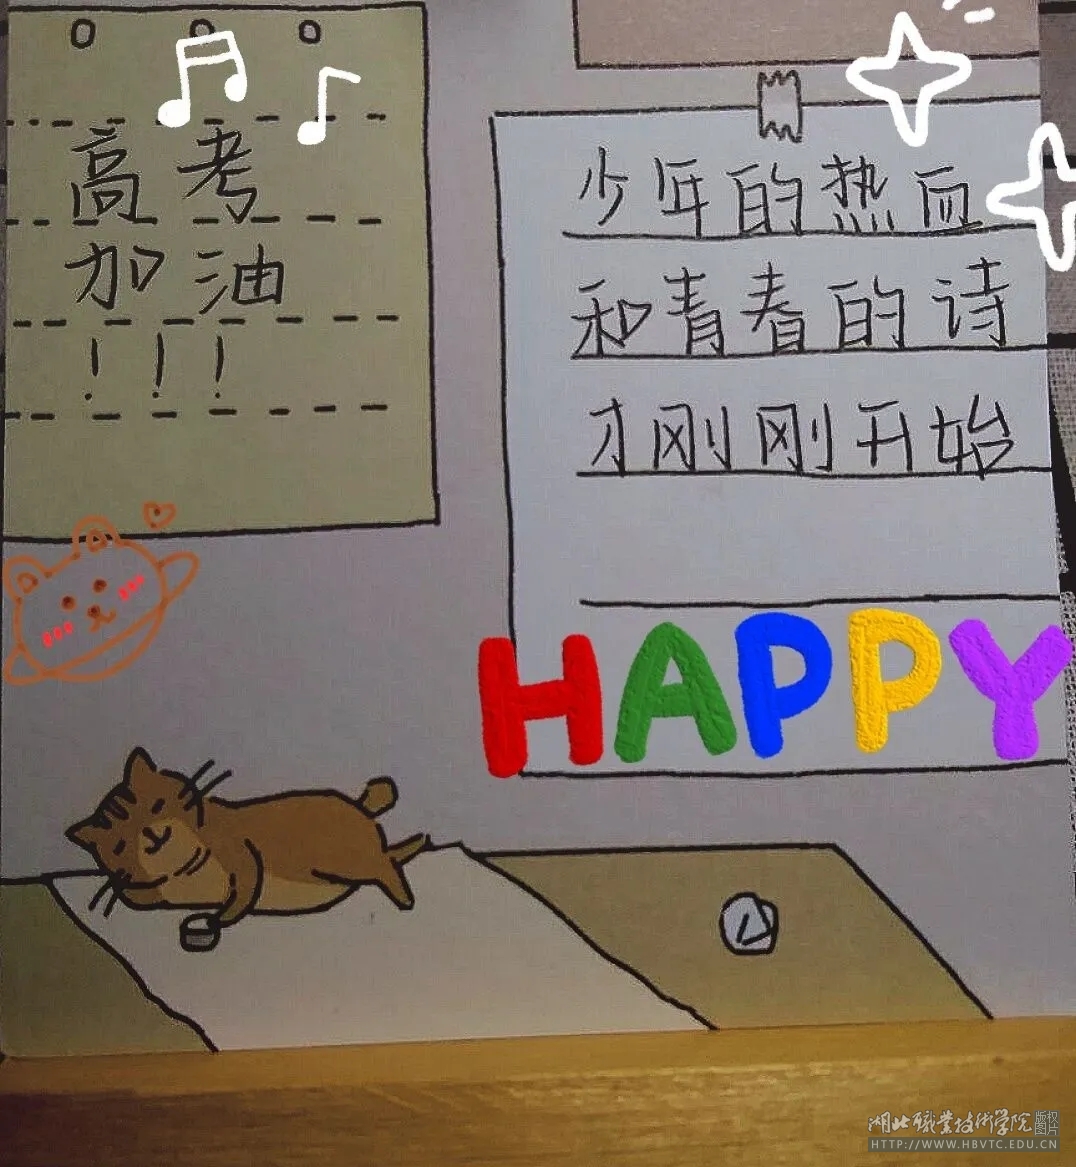 高考
加油
!!!
少年的热血
和青春的诗
才刚刚开始
HAPPY
湖北職業技術學院 版权图片
HTTP://WWW.HBVTC.EDU.CN